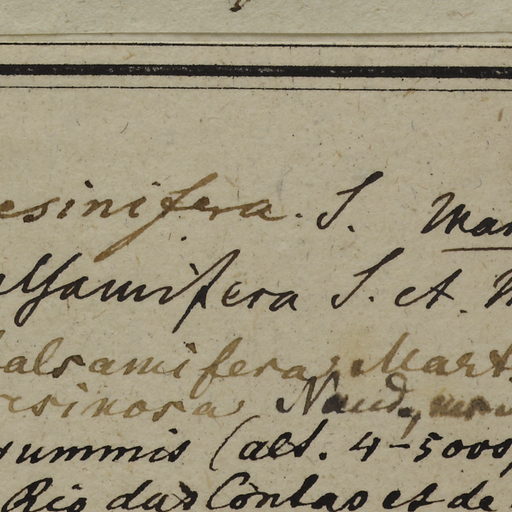 esinifera. S. Mar
alsamifera S. et. M
balsamifera Mart.
resinosa Naud.
rummis (alt. 4-5000
Rio das Contas et de